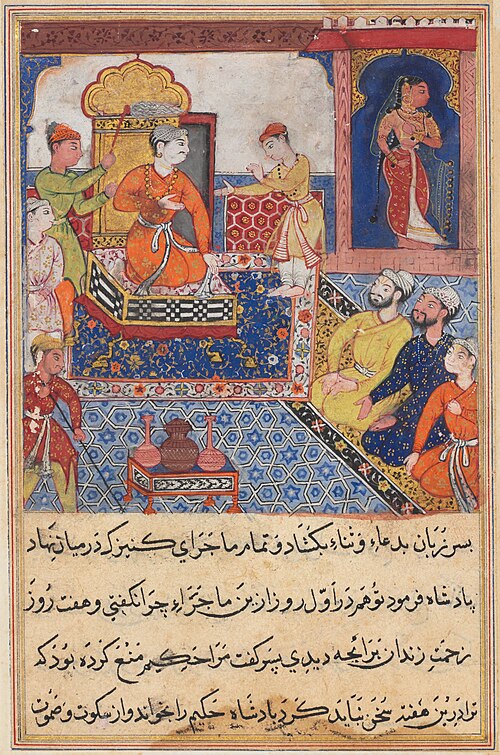 پس زبان بدعاء و ثناء بکشاد و تمام ماجرای کنیزک در میان نهاد
پادشاه فرمود تو هم در اول روز ازین ماجراء چرا نگفتی و هفت روز
زحمت زندان برا‌ئچه دیدی پسر گفت مرا حکیم منع کرده بود که
ترا درین هفته سخن نباید کرد پادشاه حکیم را بخواند و از سکوت و